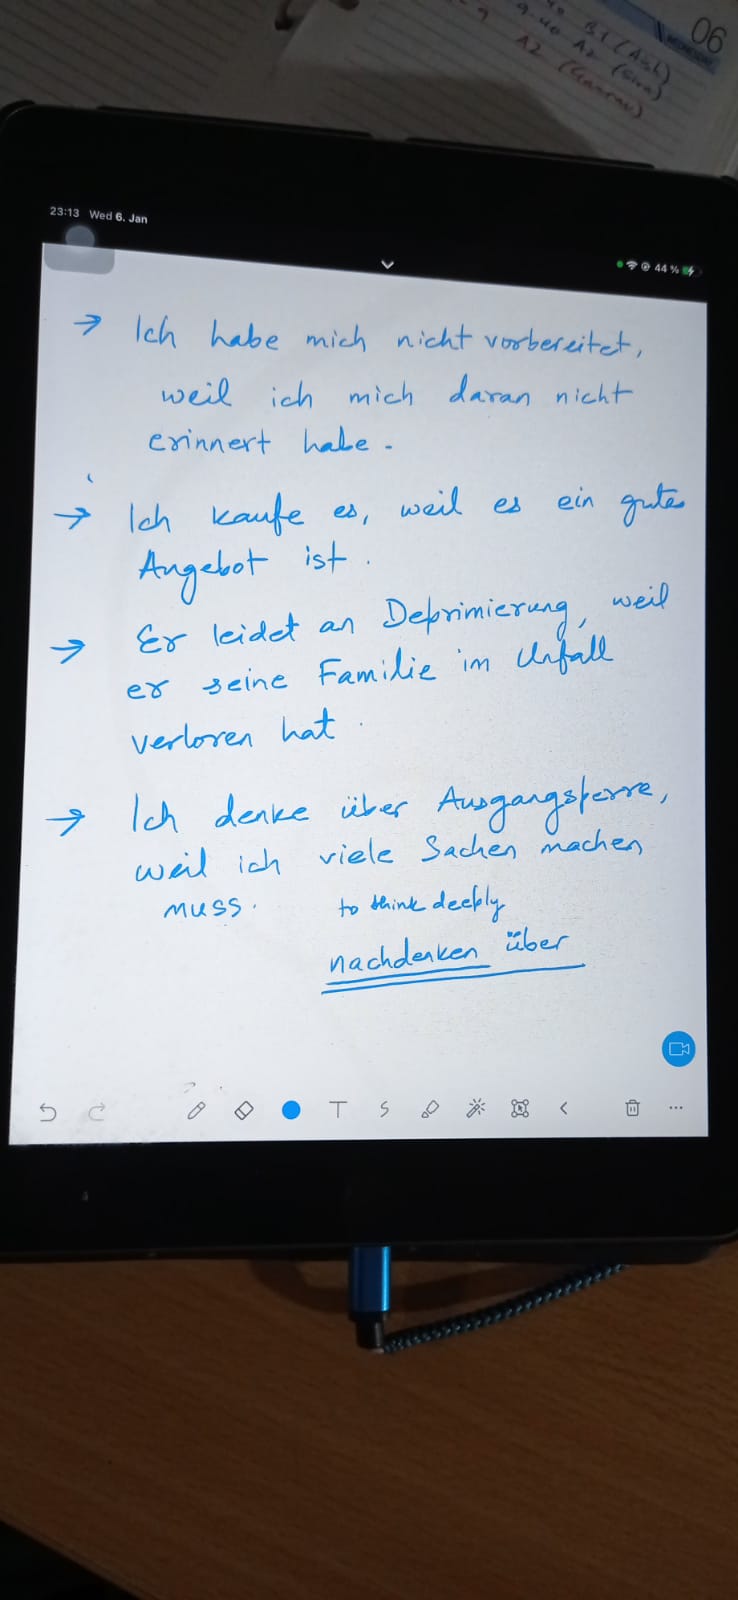 06
WEDNESDAY
B1 (Ash)
9-40 A2 (Siva)
A2 (Gaurav)
23:13 Wed 6. Jan
44 %
→ Ich habe mich nicht vorbereitet,
weil ich mich daran nicht
erinnert habe.
→ Ich kaufe es, weil es ein gutes
Angebot ist.
→ Er leidet an Deprimierung, weil
er seine Familie im Unfall
verloren hat.
→ Ich denke über Ausgangsperre,
weil ich viele Sachen machen
muss.
to think deeply
nachdenken über
T